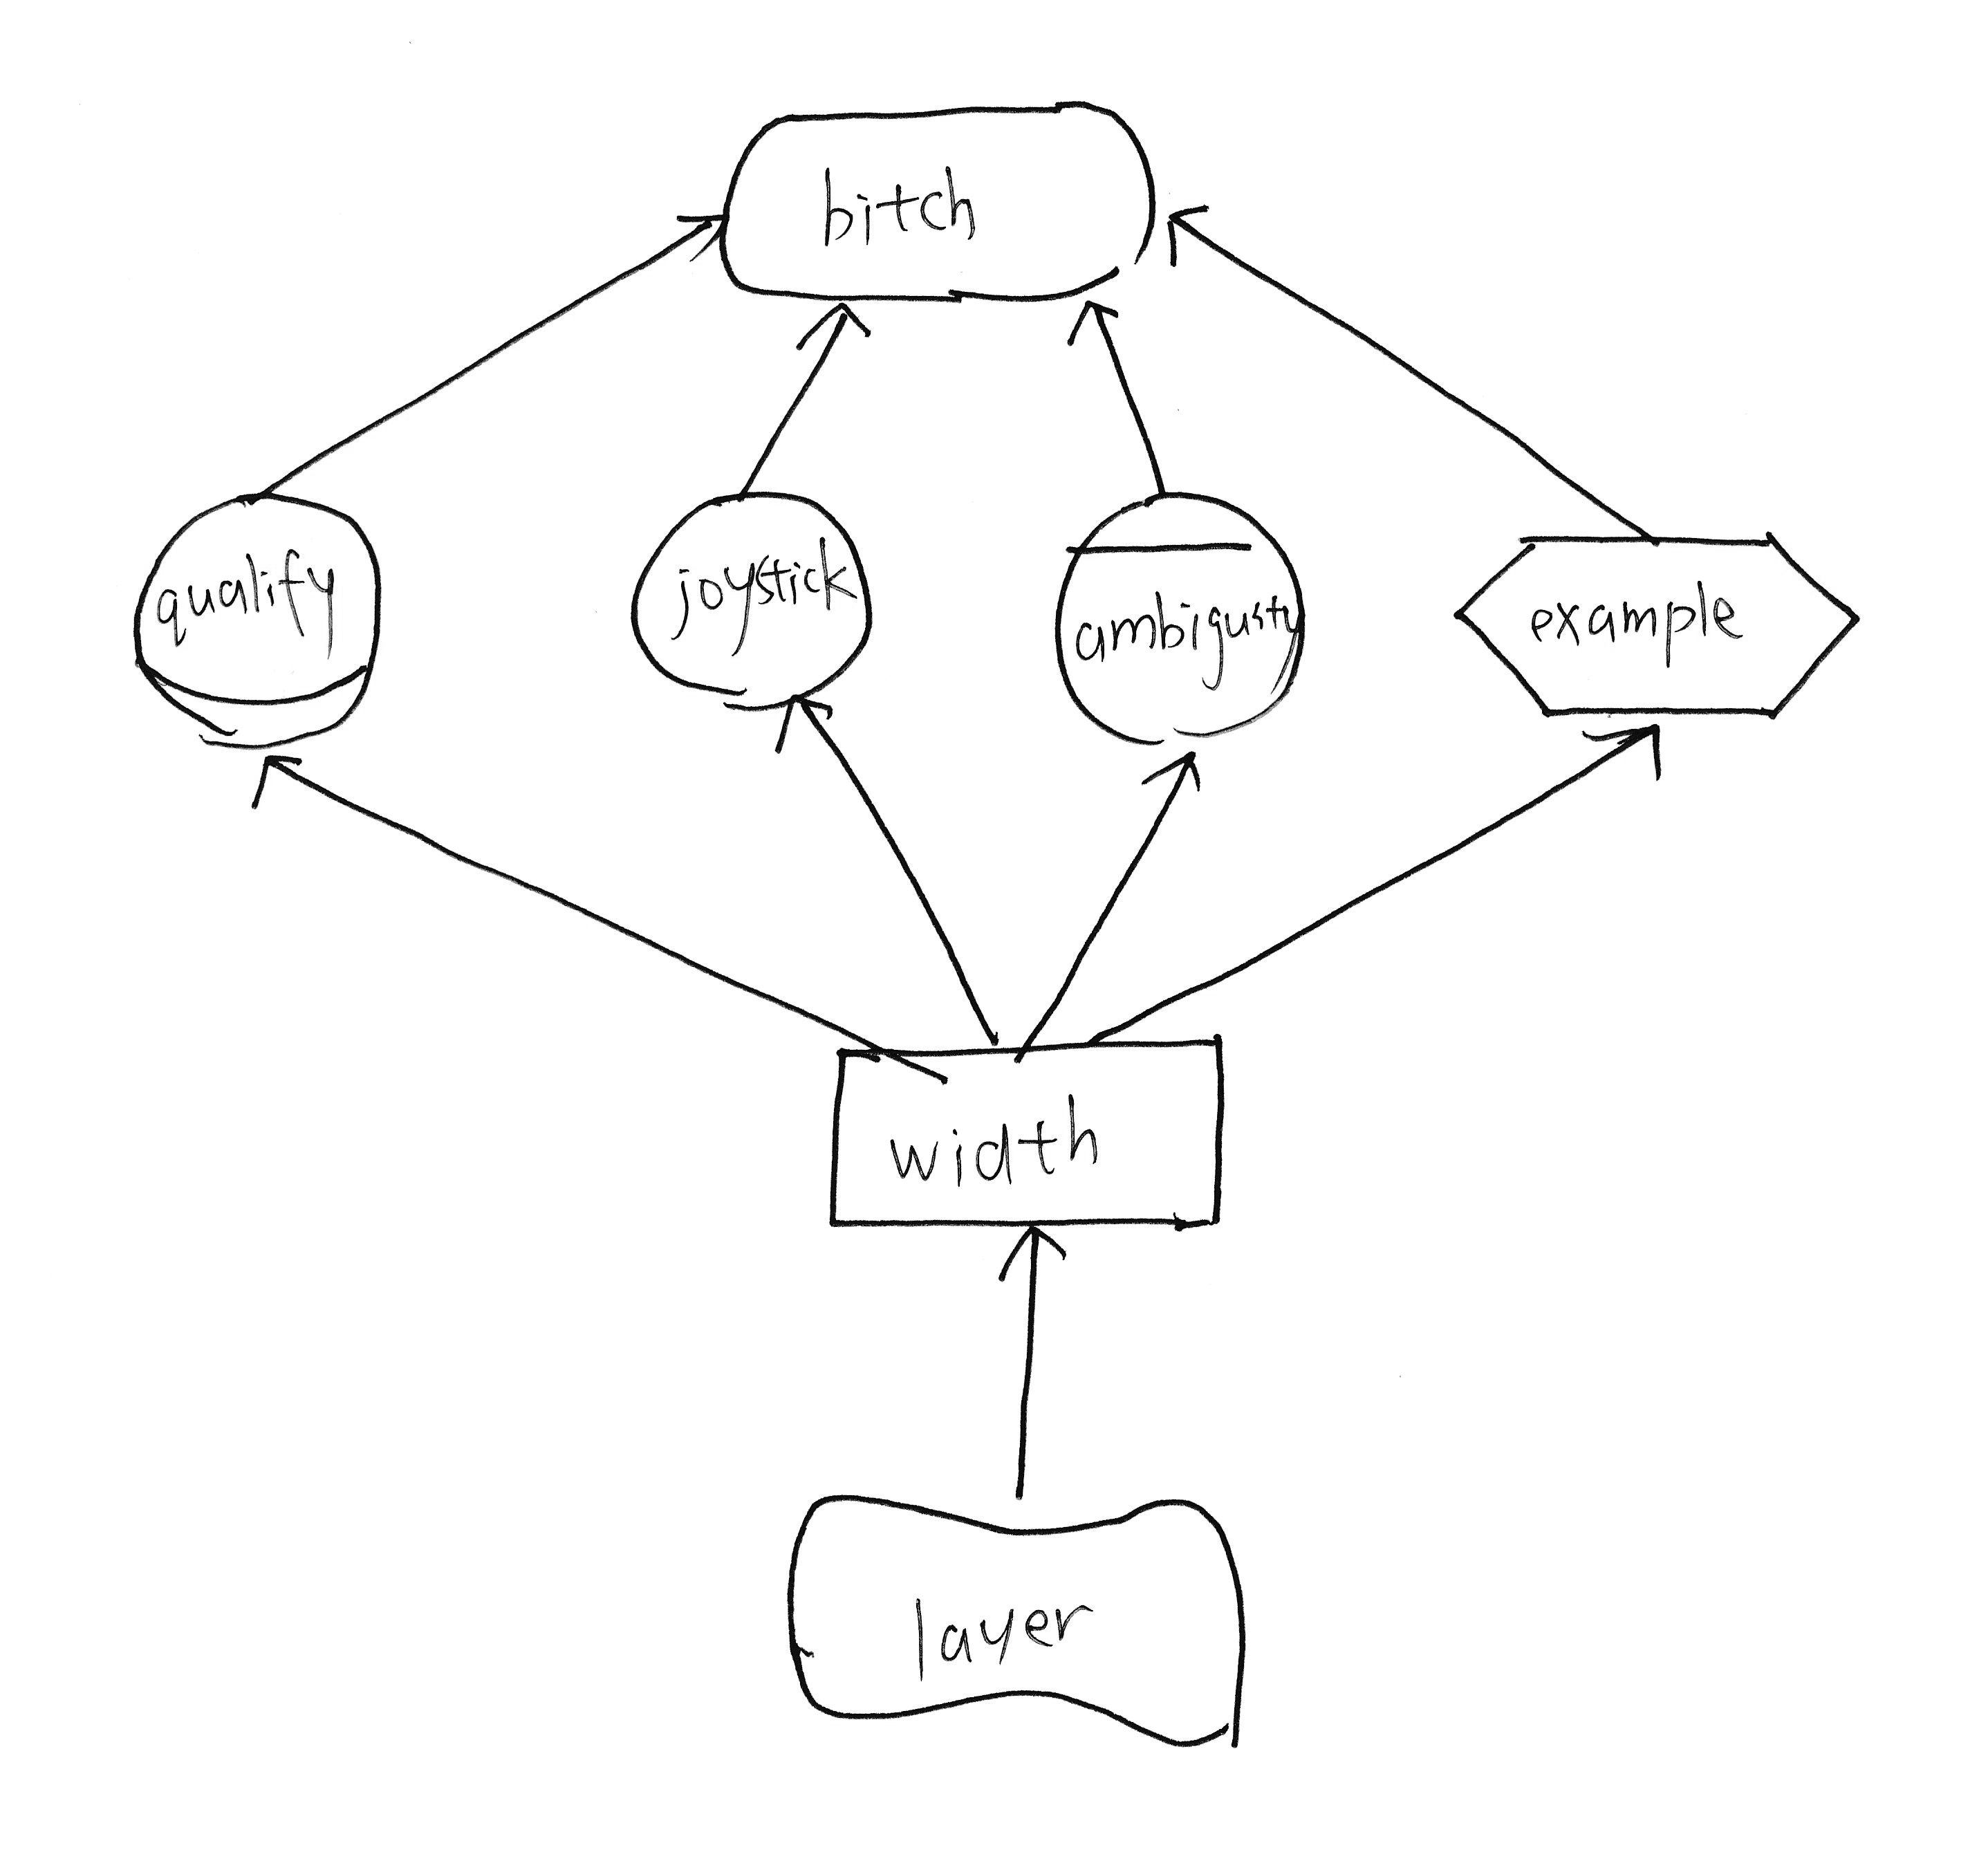 bitch
qualify
joystick
ambiguity
example
width
layer